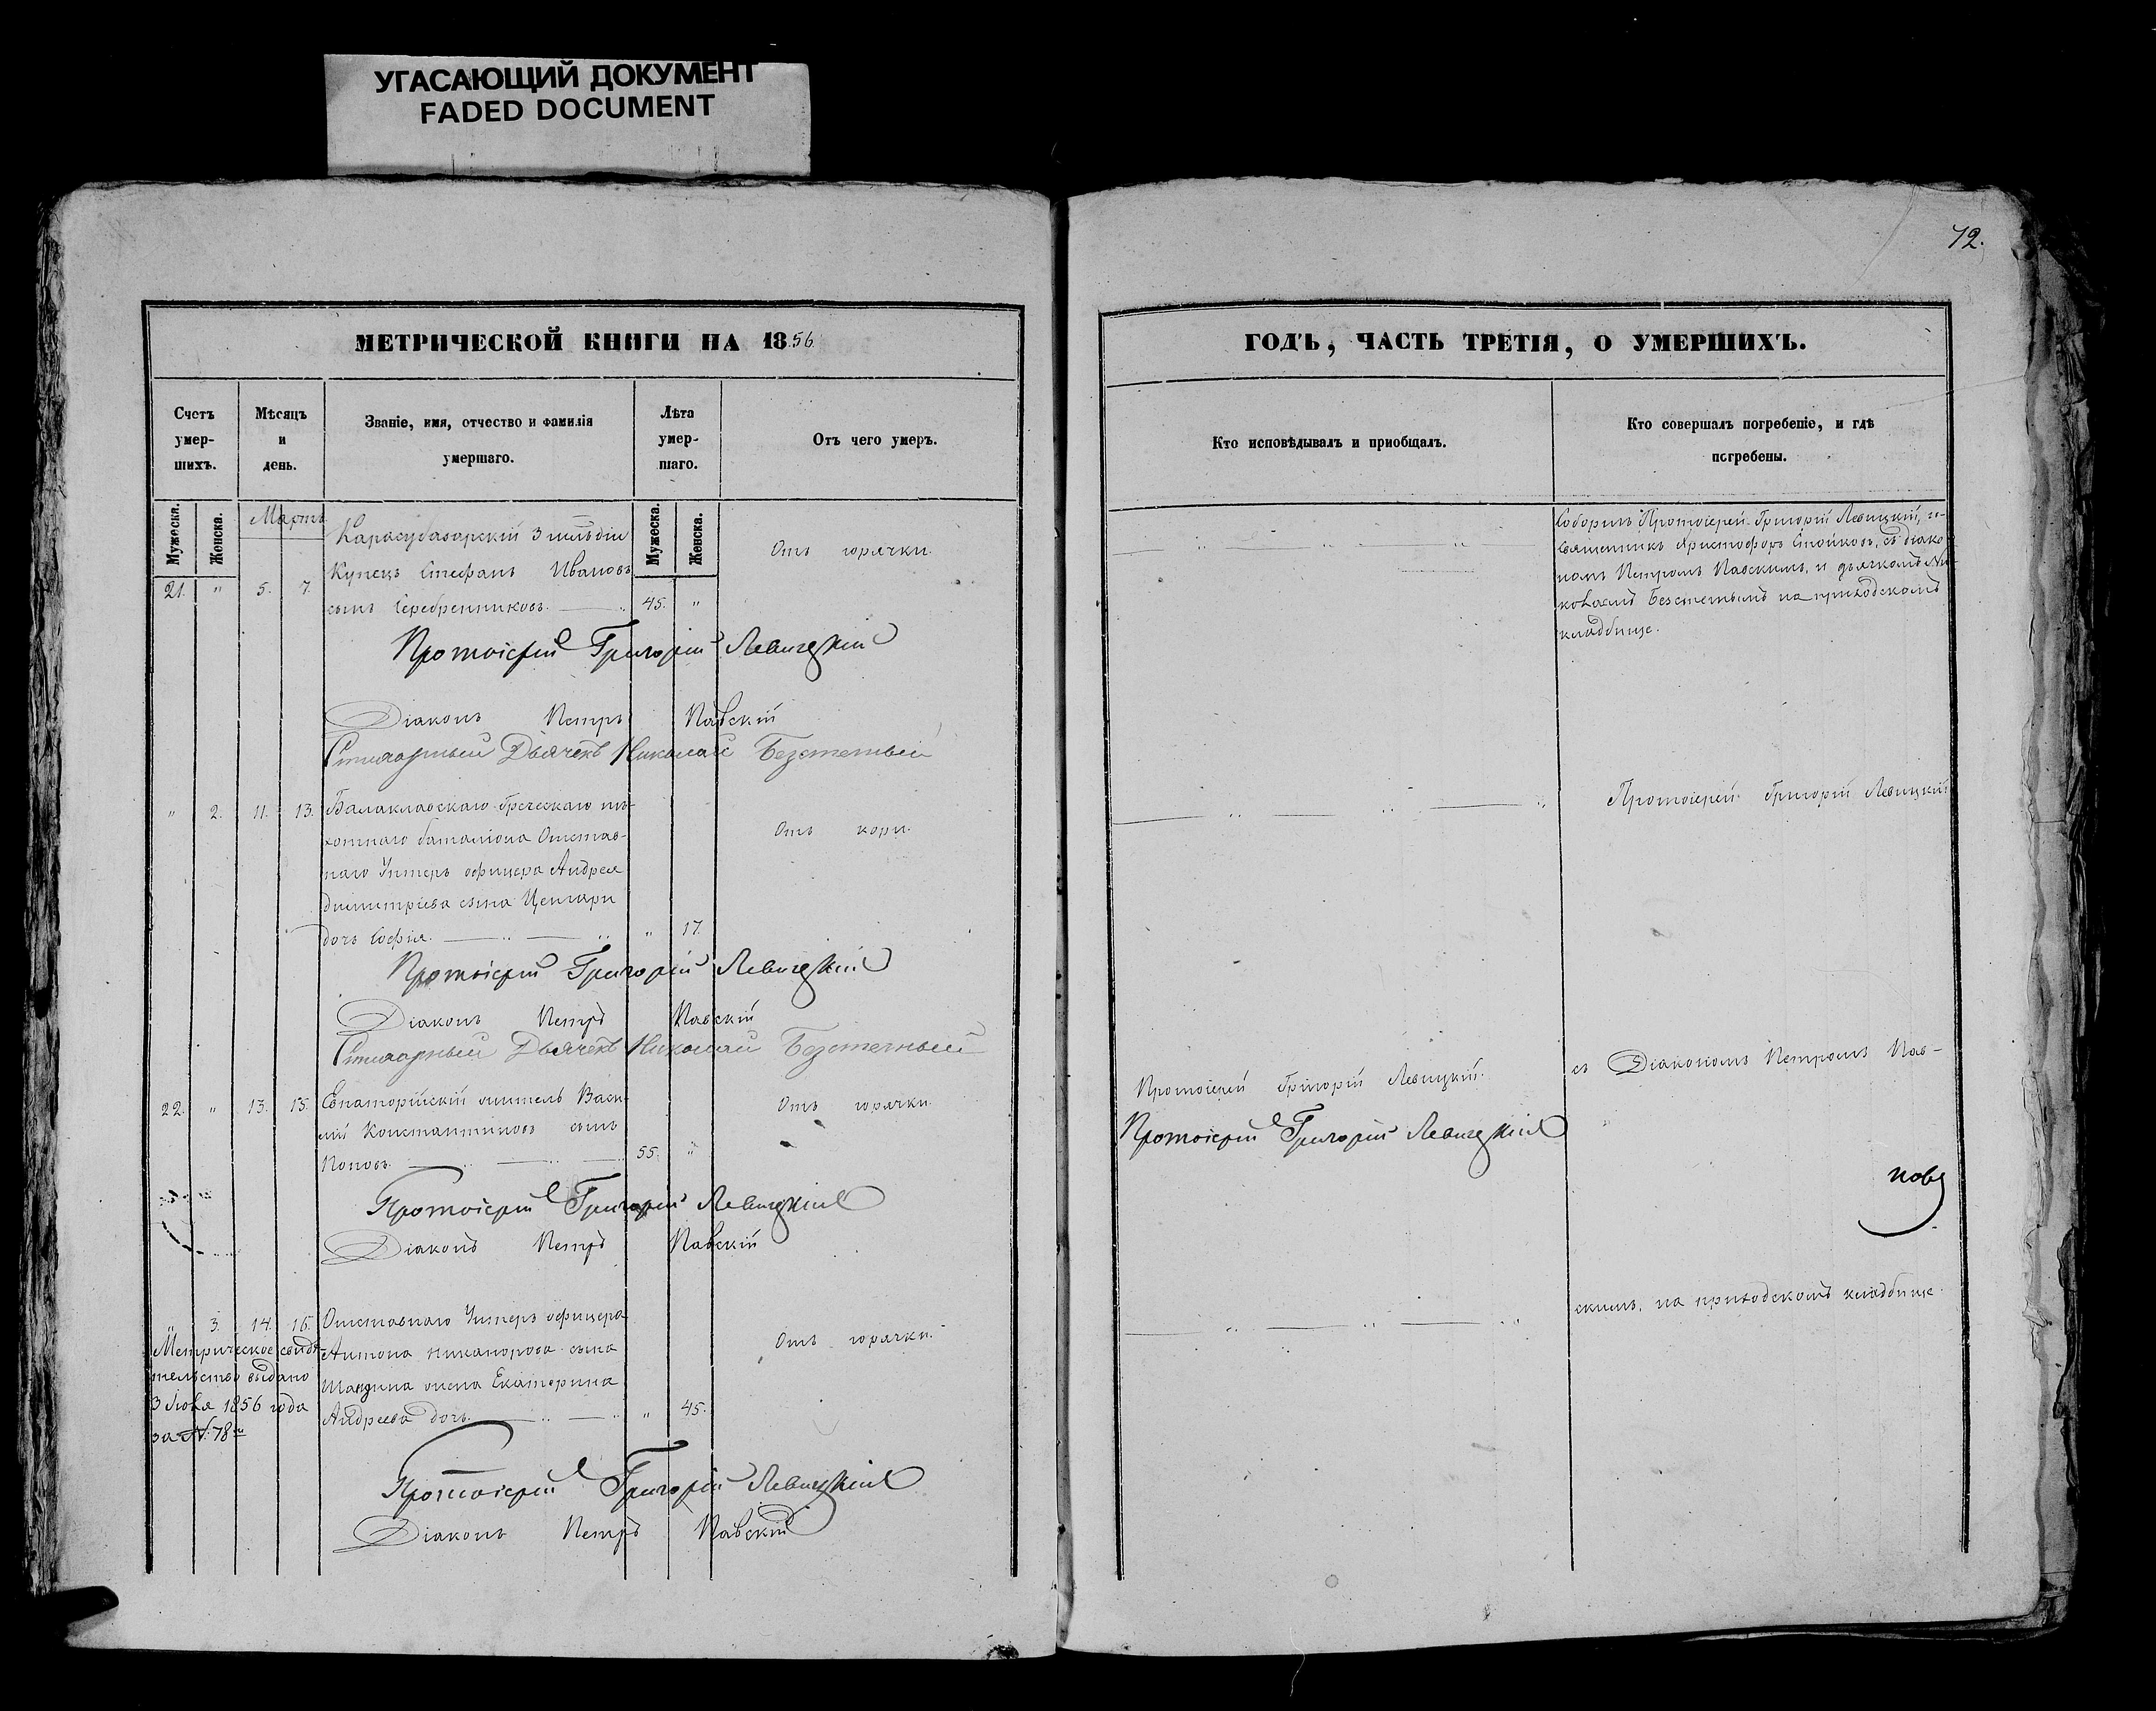 УГАСАЮЩИЙ ДОКУМЕНТ
FADED DOCUMENT
72.
МЕТРИЧЕСКОЙ КНИГИ НА 1856.
Счетъ умер-шихъ.
Мѣсяцъ и день.
Званіе, имя, отчество и фамилія умершаго.
Лѣта умер-шаго.
Отъ чего умеръ.
Мужеска.
Женска.
Мартъ
Мужеска.
Женска.
Карасубазарскій 3 гильдіи
Купецъ Стефанъ Ивановъ
21. " 5. 7. сынъ Серебренниковъ. 45. "
Отъ горячки.
Протоіерей Григорій Левицкій
Діаконъ Петръ Павскій
Стихарный Дьячекъ Николай Безсчетный
" 2. 11. 13. Балаклавскаго Греческаго пѣ-
хотнаго баталіона Отстав-
наго Унтеръ офицера Андрея
Димитріева сына
дочь Софія. " 17.
Отъ кори.
Протоіерей Григорій Левицкій
Діаконъ Петръ Павскій
Стихарный Дьячекъ Николай Безсчетный
22. " 13. 15. Евпаторійскій житель Васи-
лій Константиновъ сынъ
Поповъ. 55. "
Отъ горячки.
Протоіерей Григорій Левицкій
Діаконъ Петръ Павскій
" 3. 14. 16. Отставнаго Унтеръ офицера
Антона Никанорова сына
жена Екатерина
Андреева дочь. " 45.
Отъ горячки.
Метрическое свидѣ-
тельство выдано
3 1856 года
за № 78
Протоіерей Григорій Левицкій
Діаконъ Петръ Павскій
ГОДЪ, ЧАСТЬ ТРЕТІЯ, О УМЕРШИХЪ.
Кто исповѣдывалъ и приобщалъ.
Кто совершалъ погребеніе, и гдѣ
погребены.
Соборнѣ Протоіерей Григорій Левицкій, и
Священникъ Христофоръ Стойковъ, съ діако
номъ Петромъ Павскимъ, и дьячкомъ Ни
колаемъ Безсчетнымъ на приходскомъ
кладбище.
Протоіерей Григорій Левицкій
Протоіерей Григорій Левицкій.
съ Діакономъ Петромъ Пав-
Протоіерей Григорій Левицкій
скимъ, на приходскомъ кладбище.